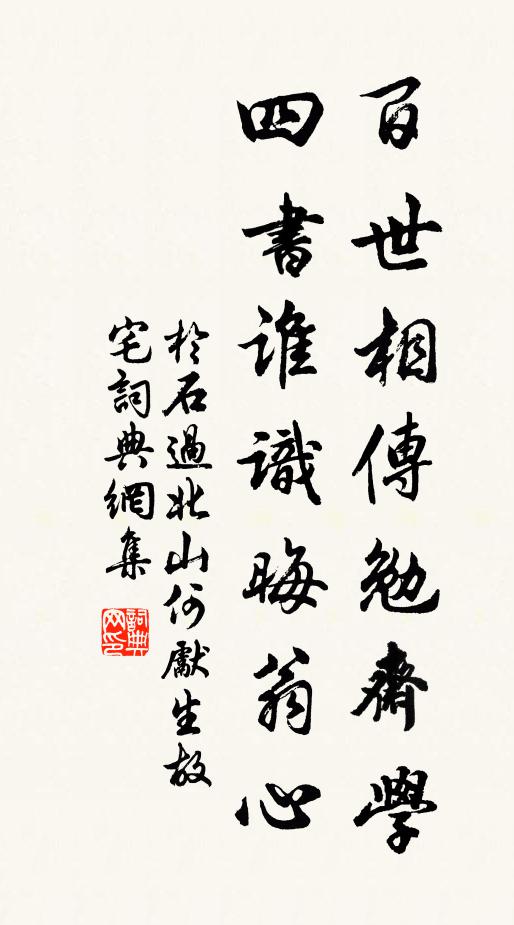 百世相傳勉齋學
四書誰識晦翁心
於石過北山何獻生故
宅詞典網集
詞典
网印